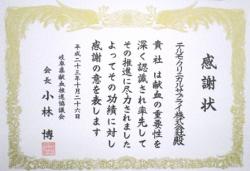 感謝状
テルモ・クリニカルサプライ株式会社殿
貴社は献血の重要性を
深く認識され率先して
その推進に尽力されました
よってその功績に対し
感謝の意を表します
平成二十三年十月二十六日
岐阜県献血推進協議会
会長 小林 博